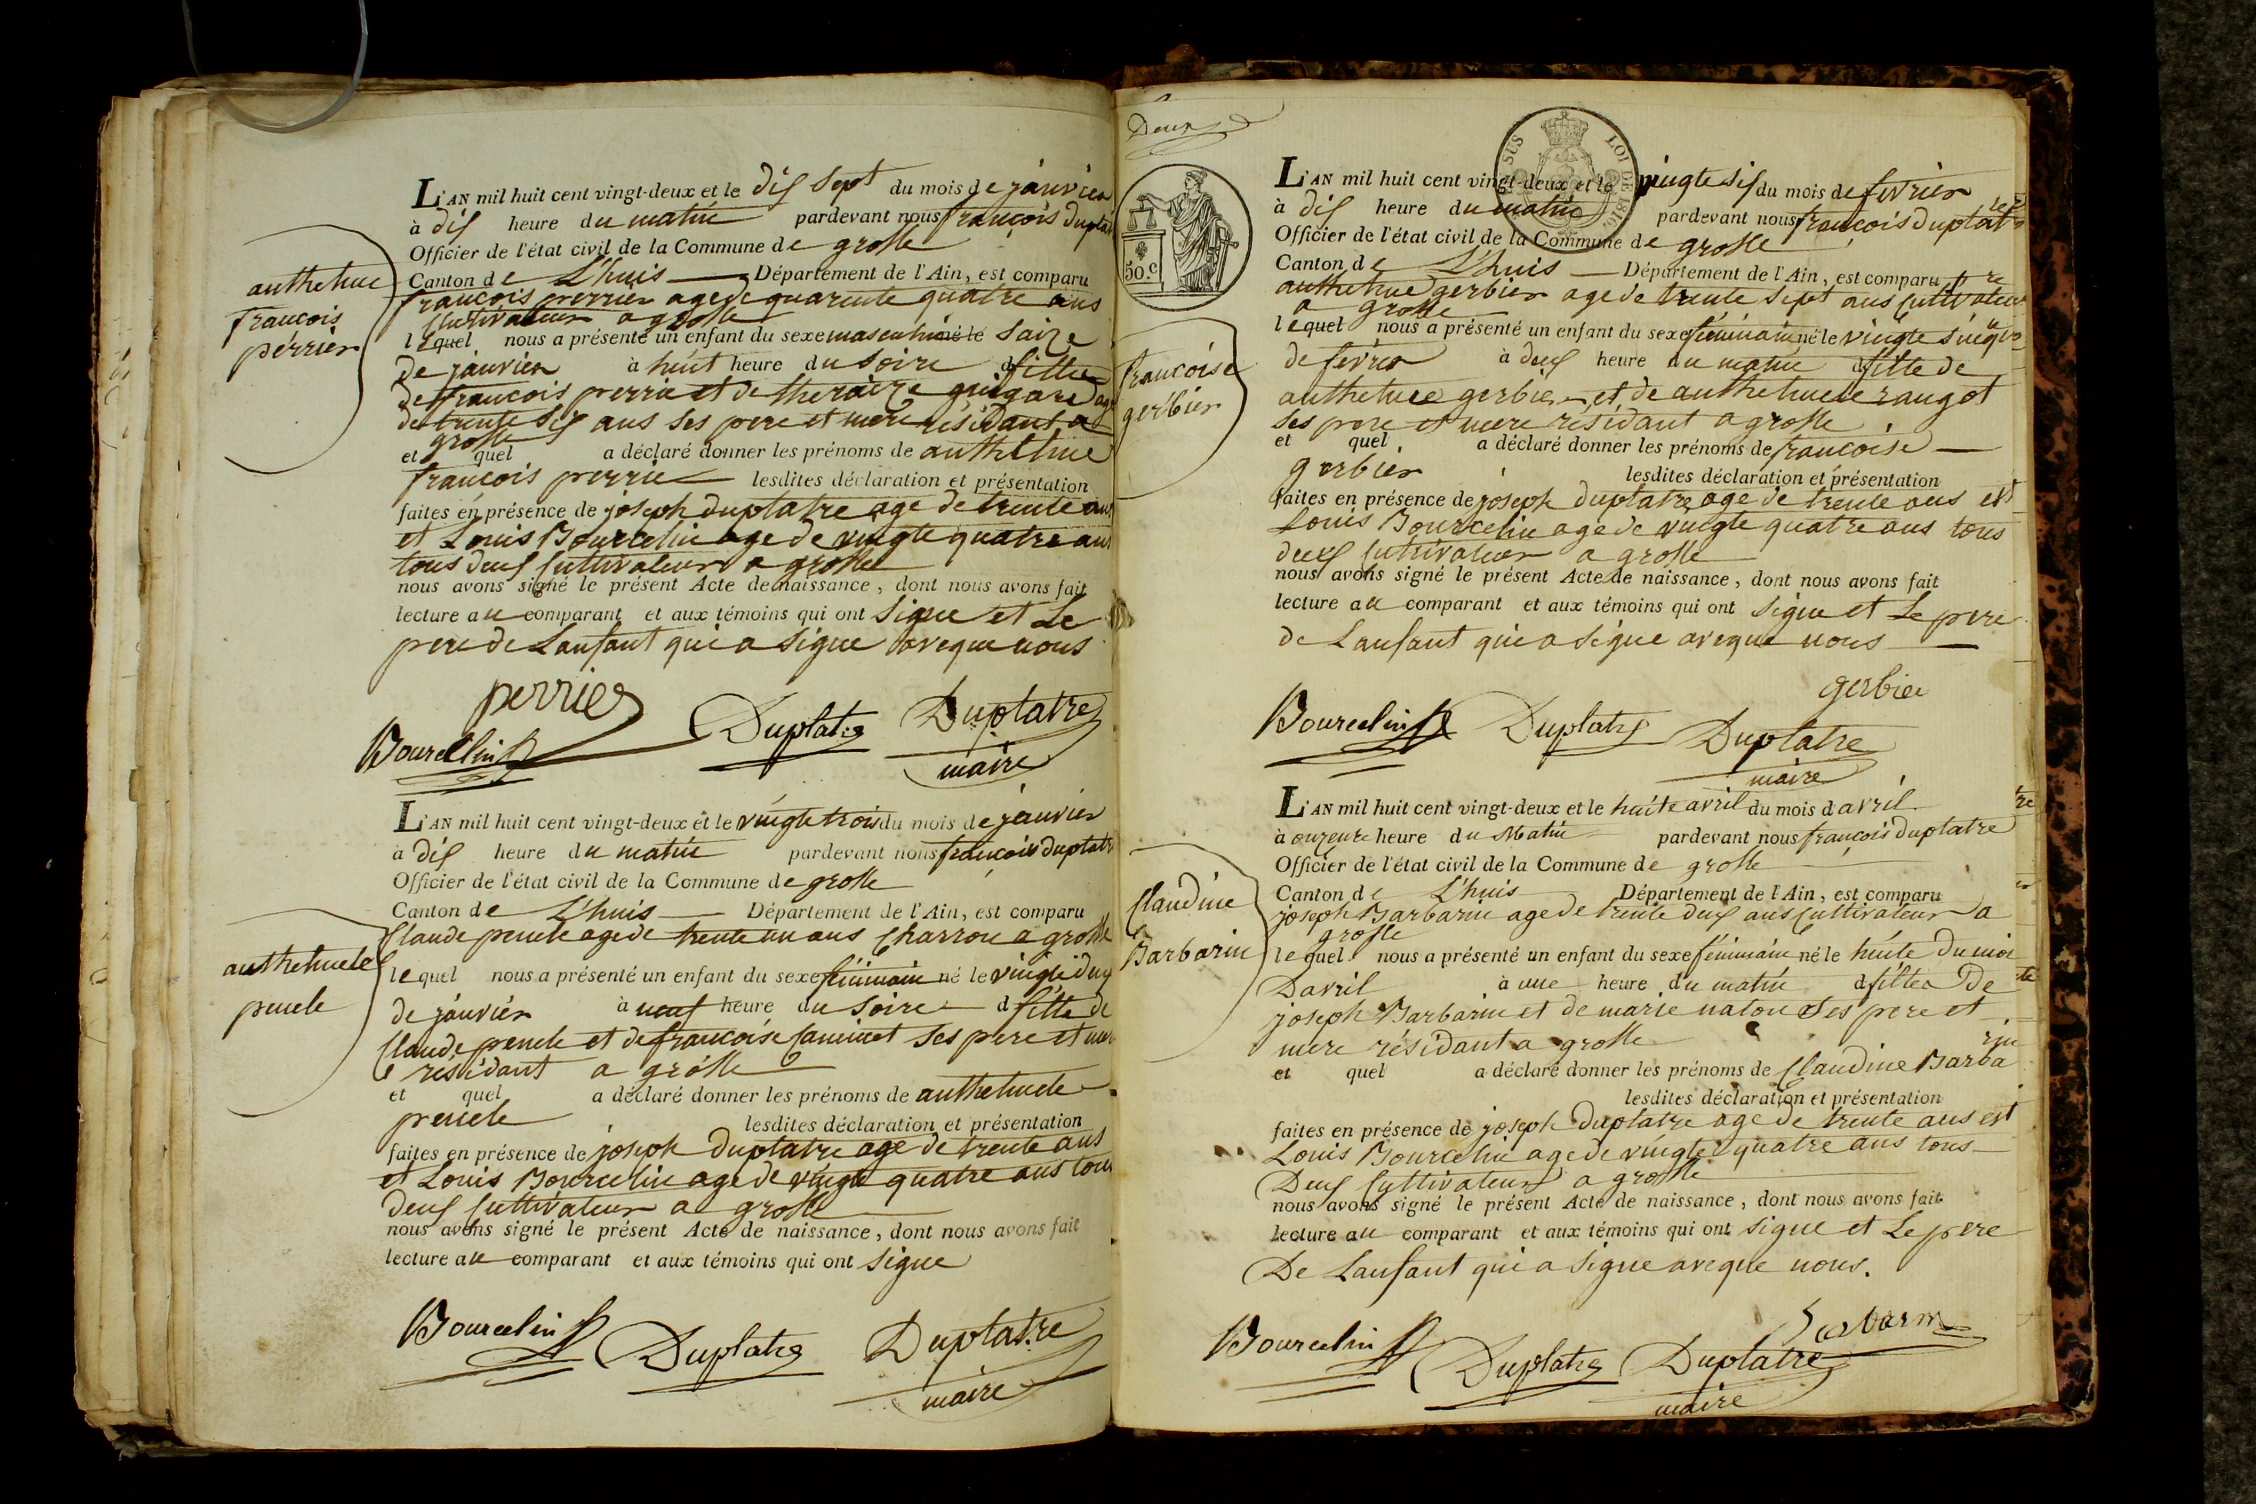 L'AN mil huit cent vingt-deux et le dis sept du mois de janvier
à dis heure du matin pardevant nous françois duplatre
Officier de l'état civil de la Commune de grolle
authelme
françois
perrier
Canton de L'huis Département de l'Ain, est comparu
françois perrier age de quarente quatre ans
Cultivateur a grolle
lequel nous a présenté un enfant du sexe masculin né le saize
de janvier à huit heure du soire d fille
de françois perrie et de theraize guigard age
de trente sis ans ses pere et mere résidant a
grolle
et quel a déclaré donner les prénoms de authelme
françois perrie lesdites déclaration et présentation
faites en présence de joseph duplatre age de trente ans
et Louis Bourcelin age de vingte quatre ans
tous deus Cultivateur a grolle
nous avons signé le présent Acte de naissance, dont nous avons fait
lecture au comparant et aux témoins qui ont signe et Le
pere de Lanfant qui a signe aveque nous
perrier
Bourcelin Duplatre Duplatre
maire
L'AN mil huit cent vingt-deux et le vingte trois du mois de janvier
à dis heure du matin pardevant nous françois duplatre
Officier de l'état civil de la Commune de grolle
authelmele
penele
Canton de L'huis Département de l'Ain, est comparu
Claude penele age de trente un ans Charron a grolle
lequel nous a présenté un enfant du sexe féminain né le vingte dus
de janvier à neuf heure du soire d fille de
Claude penele et de françoise Caminet ses pere et mere
résidant a grolle
et quel a déclaré donner les prénoms de authelmele
penele lesdites déclaration et présentation
faites en présence de joseph duplatre age de trente ans
et Louis Bourcelin age de vingte quatre ans tous
deus Cultivateur a grolle
nous avons signé le présent Acte de naissance, dont nous avons fait
lecture au comparant et aux témoins qui ont signe
Bourcelin Duplatre Duplatre
maire
Deux
50.c
SUS LOI DE 1816
L'AN mil huit cent vingt-deux et le vingte sis du mois de fevrier
à dis heure du matin pardevant nous françois duplatre
Officier de l'état civil de la Commune de grolle
Canton de L'huis Département de l'Ain, est comparu
authelme gerbier age de trente sept ans Cultivateur
a grolle
françoise
gerbier
lequel nous a présenté un enfant du sexe féminain né le vingte sinque
de fevrier à deus heure du matin d fille de
authelme gerbier et de authelmele rangot
ses pere et mere résidant a grolle
et quel a déclaré donner les prénoms de françoise
gerbier lesdites déclaration et présentation
faites en présence de joseph duplatre age de trente ans est
Louis Bourcelin age de vingte quatre ans tous
deus Cultivateur a grolle
nous avons signé le présent Acte de naissance, dont nous avons fait
lecture au comparant et aux témoins qui ont signe et Le pere
de Lanfant qui a signe aveque nous
gerbier
Bourcelin Duplatre Duplatre
maire
L'AN mil huit cent vingt-deux et le huite avril du mois d avril
à onzeure heure du Matin pardevant nous françois duplatre
Officier de l'état civil de la Commune de grolle
Claudine
Barbarin
Canton de L'huis Département de l'Ain, est comparu
joseph Barbarin age de trente dus ans Cultivateur a
grolle
lequel nous a présenté un enfant du sexe féminain né le huite du moi
Davril à une heure du matin d fille De
joseph Barbarin et de marie naton Ses pere et
mere résidant a grolle
et quel a déclaré donner les prénoms de Claudine Barba
rin
lesdites déclaration et présentation
faites en présence de joseph Duplatre age de trente ans est
Louis Bourcelin age de vingte quatre ans tous
Deus Cultivateur a grolle
nous avons signé le présent Acte de naissance, dont nous avons fait
lecture au comparant et aux témoins qui ont signe et Le pere
De Lanfant qui a signe aveque nous.
Barbarin
Bourcelin Duplatre Duplatre
maire